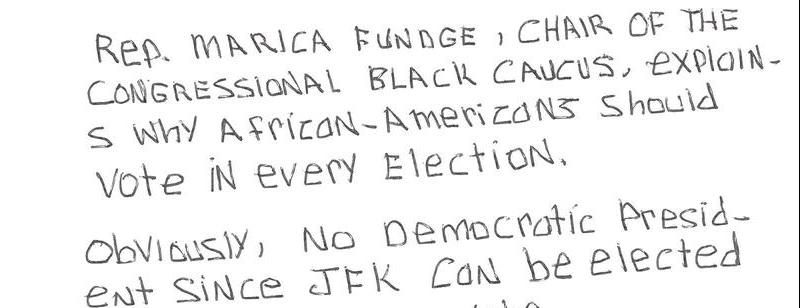 Rep. MARICA FUNDGE, CHAIR OF THE
CONGRESSIONAL BLACK CAUCUS, EXPlAIN-
S WHY AfricaN-AmericaNs Should
Vote iN every Election.
Obviously, No Democratic Presid-
ent Since JFK Can be elected